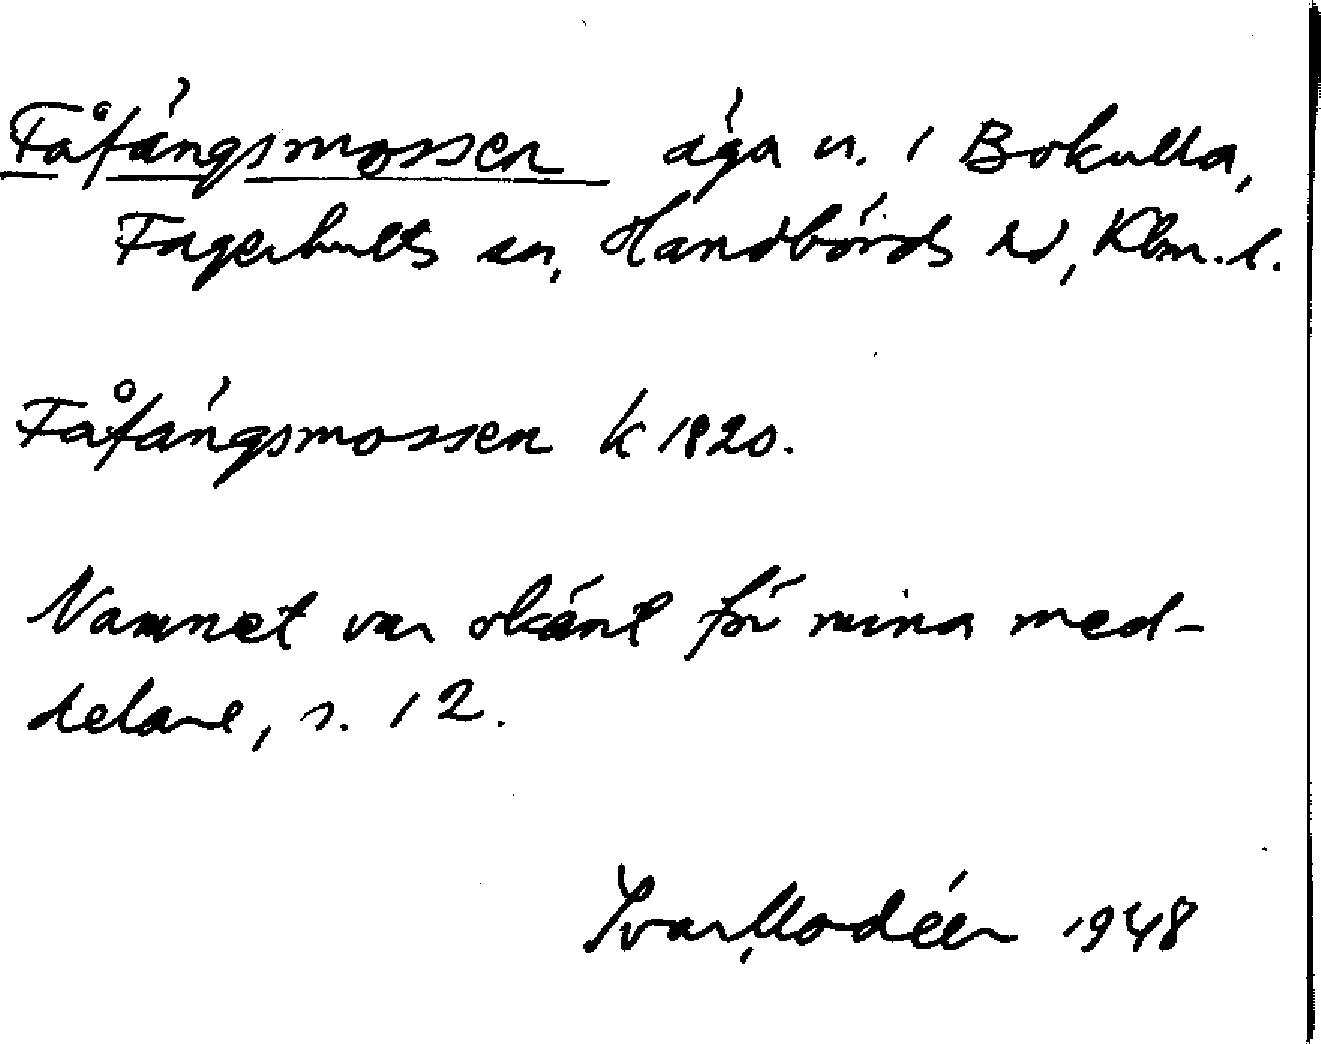 Fåfängsmossen äga n. i Bokulla,
Fagerhults sn, Handbörds hd, Klm. l.
Fåfängsmossen k 1820.
Namnet var okänt för mina med-
delare, s. 12.
Ivar Modéer 1948